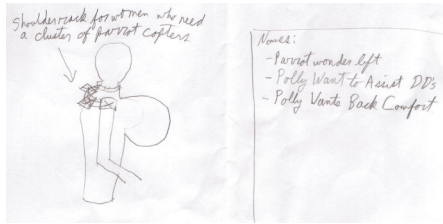 Shoulder rack for women who need
a cluster of parrot copters
Names:
- Parrot wonder left
- Polly Want to Assist DD's
- Polly Wants Back Comfort